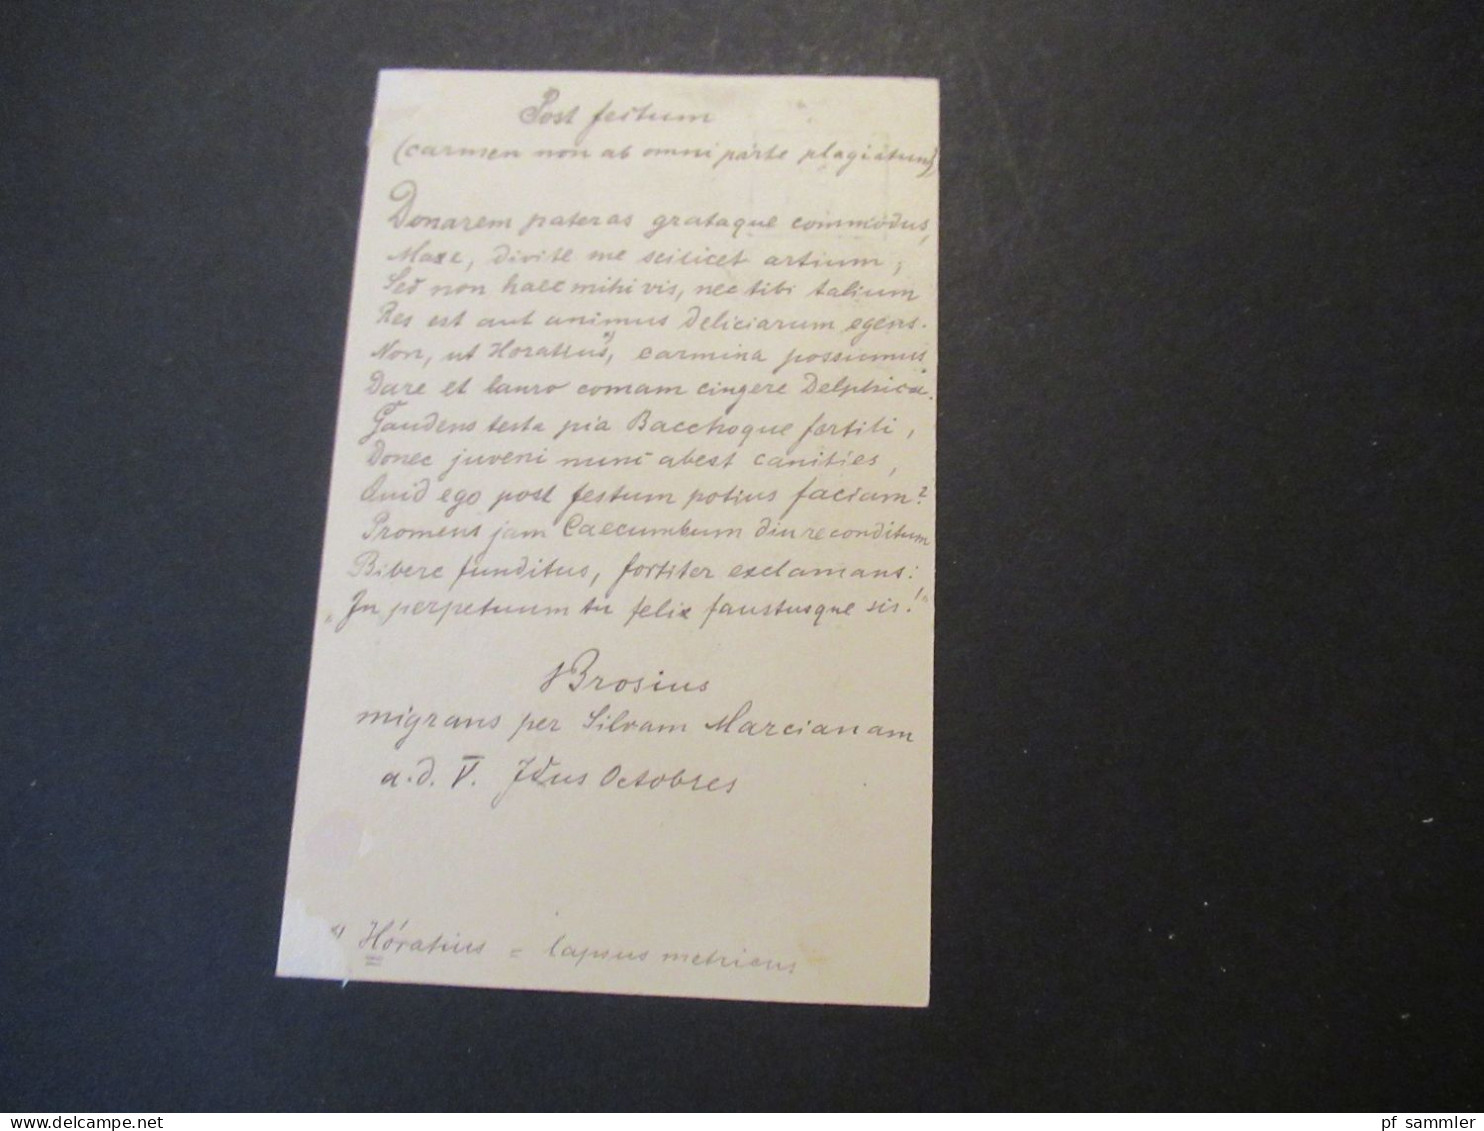 Post festum
(carmen non ab omni parte plagiatum)
Donarem pateras grataque commodus,
Maxe, divite me scilicet artium,
Sed non haec mihi vis, nec tibi talium
Res est aut animus deliciarum egens.
Non, ut Horatius*), carmina possumus
Dare et lauro comam cingere Delphica.
Gaudens testa pia Bacchoque fertili,
Donec juveni nunc abest canities,
Quid ego post festum potius faciam?
Promens jam Caecumbum diu reconditum
Bibere funditus, fortiter exclamans:
"In perpetuum tu felix faustusque sis!"
Brosius
migrans per Silvam Marcianam
a. d. V. Idus Octobres
*) Hóratius = lapsus metricus
pf_sammler